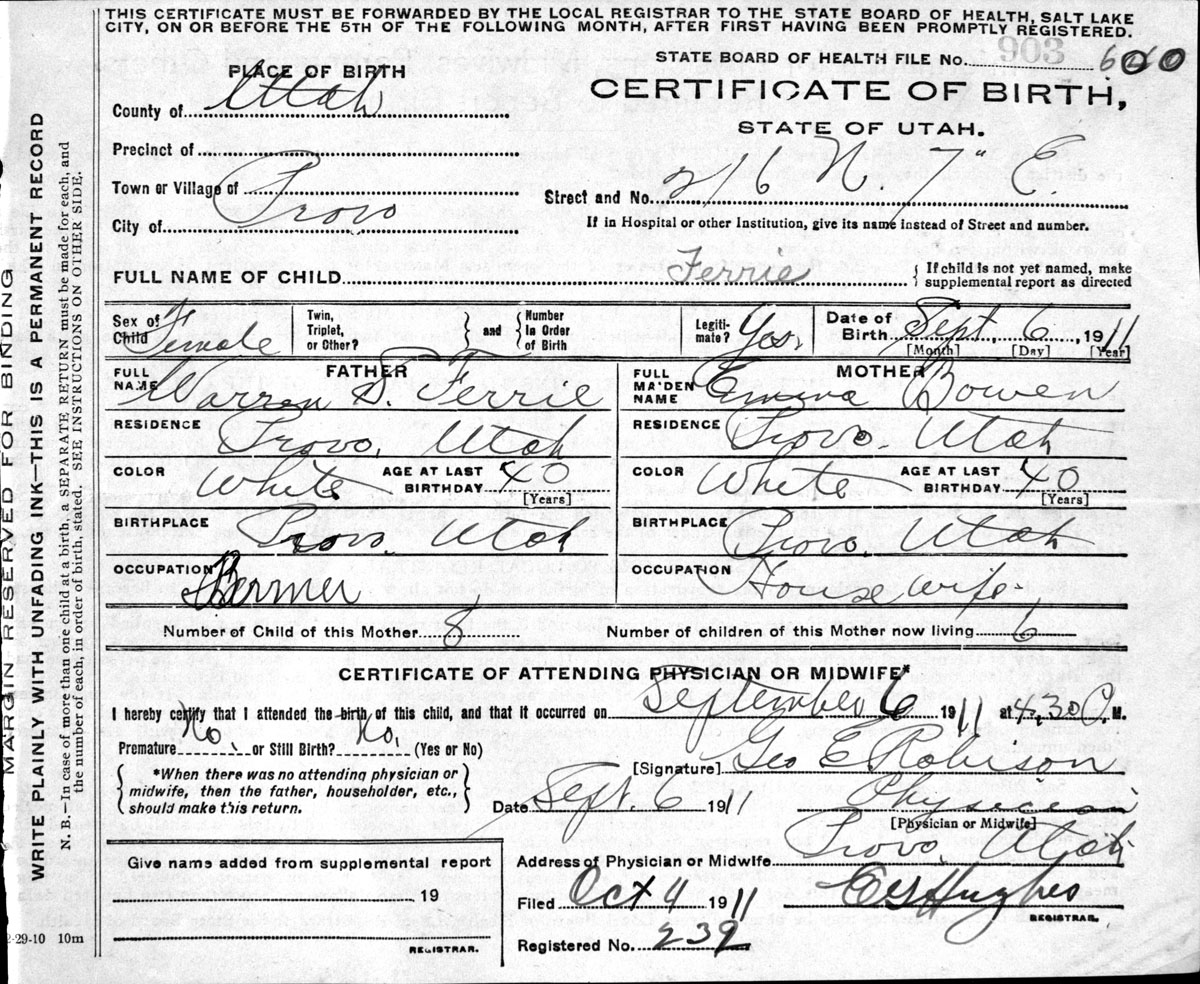 THIS CERTIFICATE MUST BE FORWARDED BY THE LOCAL REGISTRAR TO THE STATE BOARD OF HEALTH, SALT LAKE
CITY, ON OR BEFORE THE 5TH OF THE FOLLOWING MONTH, AFTER FIRST HAVING BEEN PROMPTLY REGISTERED.
STATE BOARD OF HEALTH FILE No. 903
PLACE OF BIRTH
CERTIFICATE OF BIRTH,
STATE OF UTAH.
County of Utah
Precinct of
Town or Village of
City of Provo
Street and No. 216 N. 7" E.
If in Hospital or other Institution, give its name instead of Street and number.
FULL NAME OF CHILD Ferrie
If child is not yet named, make
supplemental report as directed
Sex of Child Female
Twin, Triplet, or Other?
and
Number in Order of Birth
Legiti-mate? Yes.
Date of Birth Sept. 6, 1911
[Month] [Day] [Year]
FATHER
FULL NAME Warren S. Ferrie
RESIDENCE Provo, Utah
COLOR White AGE AT LAST BIRTHDAY 40
[Years]
BIRTHPLACE Provo, Utah
OCCUPATION
MOTHER
FULL MAIDEN NAME Emma Bowen
RESIDENCE Provo, Utah
COLOR White AGE AT LAST BIRTHDAY 40
[Years]
BIRTHPLACE Provo, Utah
OCCUPATION House wife
Number of Child of this Mother 8
Number of children of this Mother now living 6
CERTIFICATE OF ATTENDING PHYSICIAN OR MIDWIFE*
I hereby certify that I attended the birth of this child, and that it occurred on September 6 1911 at 4,30 P. M.
Premature No. or Still Birth? No. (Yes or No)
*When there was no attending physician or
midwife, then the father, householder, etc.,
should make this return.
[Signature] Geo E Robison
Date Sept. 6 1911 Physician
[Physician or Midwife]
Address of Physician or Midwife Provo, Utah
Give name added from supplemental report
19
REGISTRAR.
Filed Oct 4 1911 Hughes
REGISTRAR.
Registered No. 239
2-29-10 10m
MARGIN RESERVED FOR BINDING
WRITE PLAINLY WITH UNFADING INK—THIS IS A PERMANENT RECORD
N. B.—In case of more than one child at a birth, a SEPARATE RETURN must be made for each, and
the number of each, in order of birth, stated. SEE INSTRUCTIONS ON OTHER SIDE.